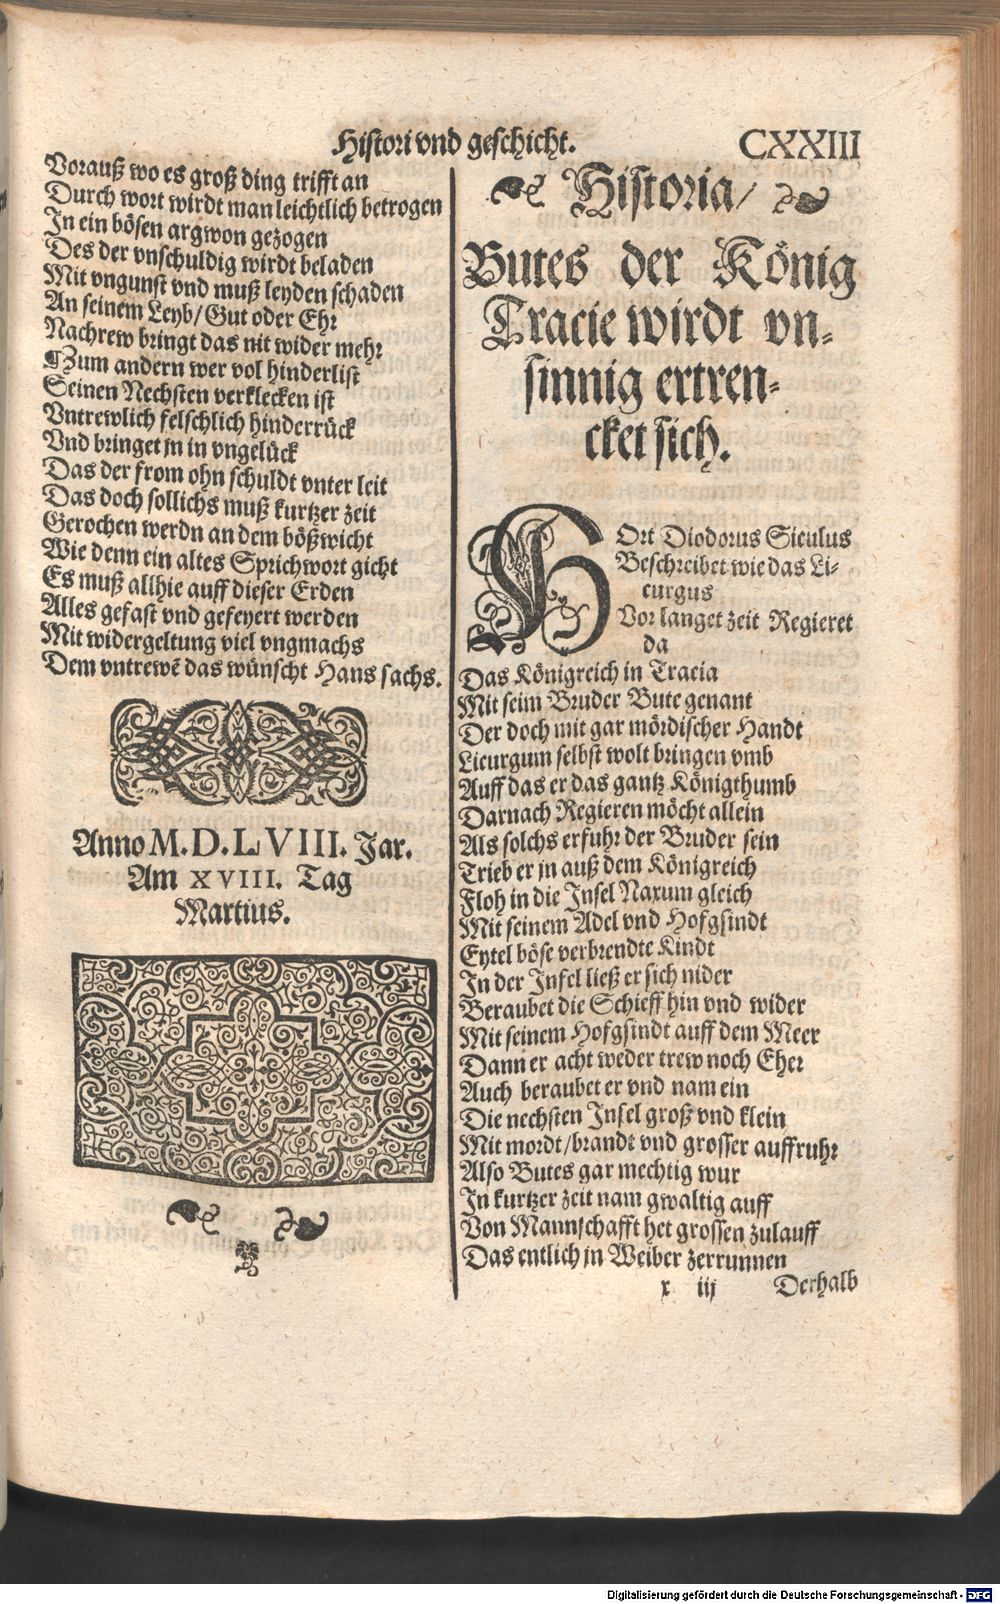 Histori vnd geschicht. CXXIII
Vorauß wo es groß ding trifft an
Durch wort wirdt man leichtlich betrogen
In ein bösen argwon gezogen
Des der vnschuldig wirdt beladen
Mit vngunst vnd muß leyden schaden
An seinem Leyb/ Gut oder Ehr
Nachrew bringt das nit wider mehr
¶Zum andern wer vol hinderlist
Seinen Nechsten verklecken ist
Vntrewlich felschlich hinderrück
Vnd bringet jn in vngelück
Das der from ohn schuldt vnter leit
Das doch sollichs muß kurtzer zeit
Gerochen werdn an dem bößwicht
Wie denn ein altes Sprichwort gicht
Es muß allhie auff dieser Erden
Alles gefast vnd gefeyert werden
Mit widergeltung viel vngmachs
Dem vntrewē das wünscht Hans sachs.
Anno M.D.LVIII. Jar.
Am XVIII. Tag
Martius.
Historia/
Butes der König
Tracie wirdt vn=
sinnig ertren=
cket sich.
HOrt Diodorus Siculus
Beschreibet wie das Li=
curgus
Vor langet zeit Regieret
da
Das Königreich in Tracia
Mit seim Bruder Bute genant
Der doch mit gar mördischer Handt
Licurgum selbst wolt bringen vmb
Auff das er das gantz Königthumb
Darnach Regieren möcht allein
Als solchs erfuhr der Bruder sein
Trieb er jn auß dem Königreich
Floh in die Insel Naxum gleich
Mit seinem Adel vnd Hofgsindt
Eytel böse verbrendte Kindt
In der Insel ließ er sich nider
Beraubet die Schieff hin vnd wider
Mit seinem Hofgsindt auff dem Meer
Dann er acht weder trew noch Eher
Auch beraubet er vnd nam ein
Die nechsten Insel groß vnd klein
Mit mordt/ brandt vnd grosser auffruhr
Also Butes gar mechtig wur
In kurtzer zeit nam gwaltig auff
Von Mannschafft het grossen zulauff
Das entlich jn Weiber zerrunnen
x iij Derhalb
Digitalisierung gefördert durch die Deutsche Forschungsgemeinschaft - DFG